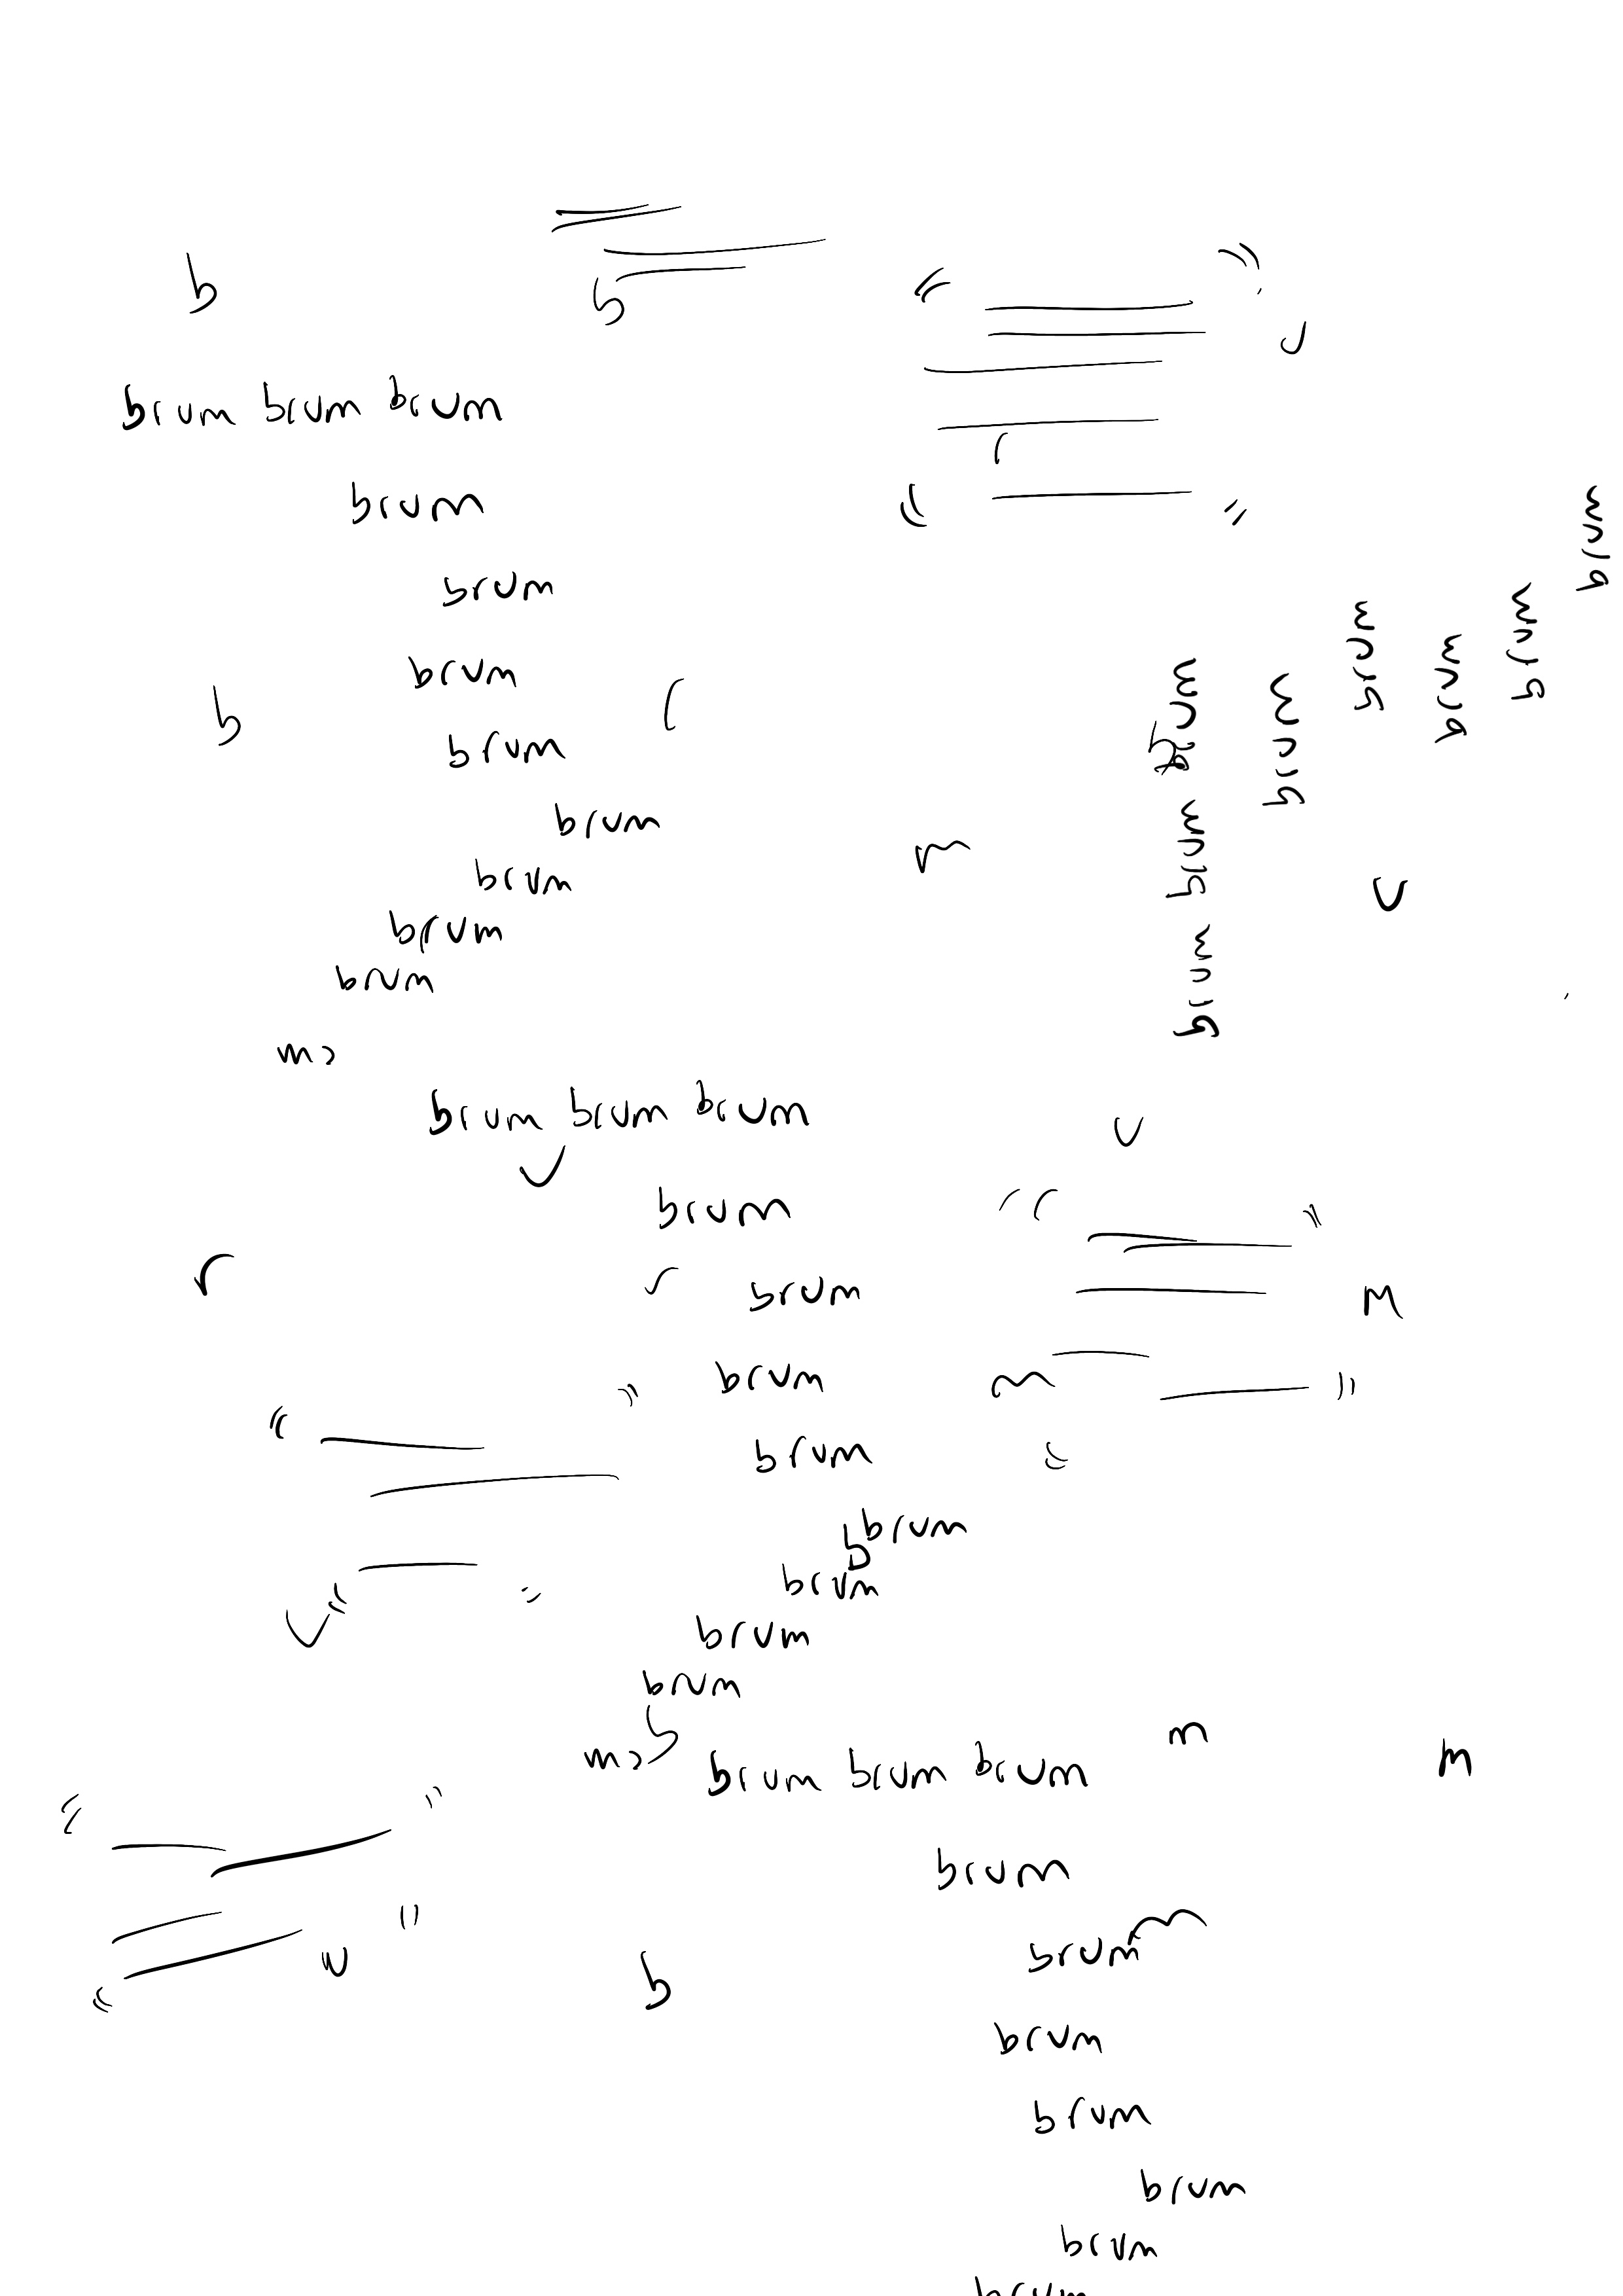 b
b
J
brum brum brum
r
brum
brum
brum
b
brum
brum
brum
brum
brum
brum
brum
brum
brum
brum
brum
m
u
brum
brum
brum
m
brum brum brum
u
u
brum
r
r
brum
M
brum
m
brum
brum
b
brum
brum
brum
m
b
brum brum brum
m
m
brum
m
brum
u
b
brum
brum
brum
brum